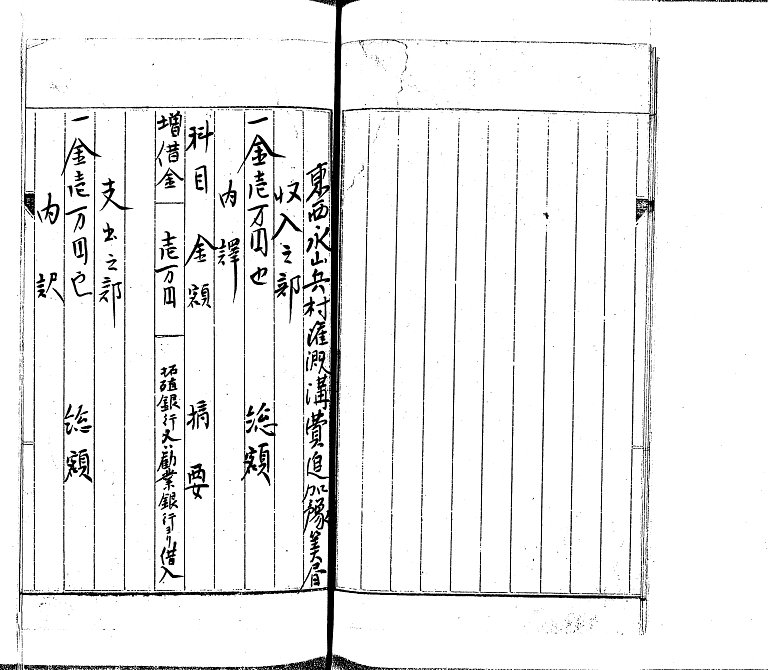 東西永山兵村灌漑溝費追加豫算書
収入之部
一金壱万円也 総額
内譯
科目 金額 摘要
増借金 壱万円 拓殖銀行又ハ勧業銀行ヨリ借入
支出之部
一金壱万円也 総額
内訳